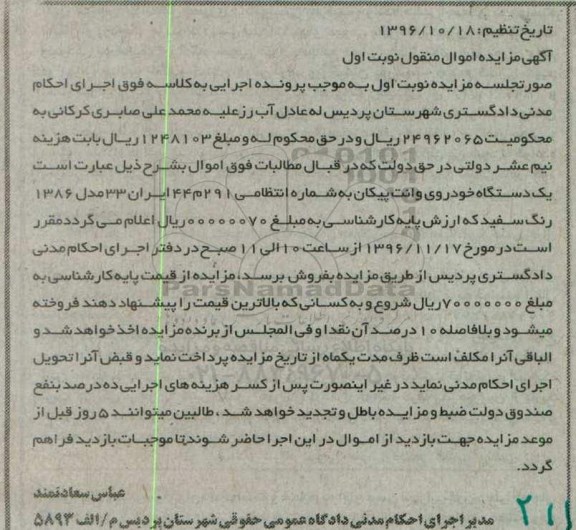 تاریخ تنظیم: ۱۳۹۶/۱۰/۱۸
آگهی مزایده اموال منقول نوبت اول
صورتجلسه مزایده نوبت اول به موجب پرونده اجرایی به کلاسه فوق اجرای احکام
مدنی دادگستری شهرستان پردیس له عادل آب رز علیه محمدعلی صابری کرکانی به
محکومیت ۲۴۹۶۲۰۶۵ ریال و در حق محکوم له و مبلغ ۱۲۴۸۱۰۳ ریال بابت هزینه
نیم عشر دولتی در حق دولت که در قبال مطالبات فوق اموال بشرح ذیل عبارت است
یک دستگاه خودروی وانت پیکان به شماره انتظامی ۲۹۱م۴۴ ایران ۳۳ مدل ۱۳۸۶
رنگ سفید که ارزش پایه کارشناسی به مبلغ ۰۰۰۰۰۰۷۰ ریال اعلام می گردد مقرر
است در مورخ ۱۳۹۶/۱۱/۱۷ از ساعت ۱۰ الی ۱۱ صبح در دفتر اجرای احکام مدنی
دادگستری پردیس از طریق مزایده بفروش برسد، مزایده از قیمت پایه کارشناسی به
مبلغ ۷۰۰۰۰۰۰۰ ریال شروع و به کسانی که بالاترین قیمت را پیشنهاد دهند فروخته
میشود و بلافاصله ۱۰ درصد آن نقدا و فی المجلس از برنده مزایده اخذ خواهد شد و
الباقی آنرا مکلف است ظرف مدت یکماه از تاریخ مزایده پرداخت نماید و قبض آنرا تحویل
اجرای احکام مدنی نماید در غیر اینصورت پس از کسر هزینه های اجرایی ده درصد بنفع
صندوق دولت ضبط و مزایده باطل و تجدید خواهد شد، طالبین میتوانند ۵ روز قبل از
موعد مزایده جهت بازدید از اموال در این اجرا حاضر شوند تا موجبات بازدید فراهم
گردد.
عباس سعادتمند
مدیر اجرای احکام مدنی دادگاه عمومی حقوقی شهرستان پردیس م/الف ۵۸۹۳
۲۱۱
ParsNamadData